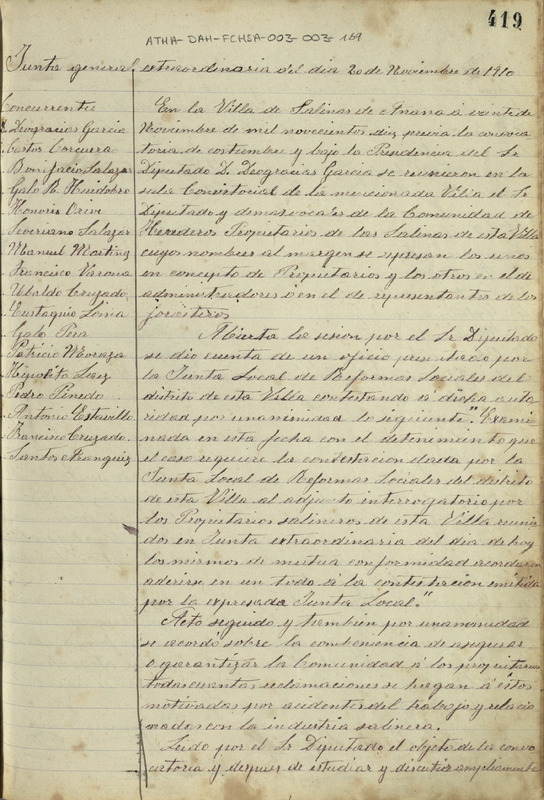 419
ATHA-DAH-FCHSA-003-003-169
Junta general extraordinaria del dia 20 de Noviembre de 1910
Concurrentes
Deogracias Garcia
Carlos Corcuera
Bonifacio Salazar
Galo R. Huidobro
Honorio Orive
Severiano Salazar
Manuel Martinez
Francisco Varona
Ubaldo Cruzado
Eustaquio Loma
Galo Pera
Patricio Moraza
Hipolito Saez
Pedro Pinedo
Antonio Estavillo
Francisco Cruzado.
Santos Aranguiz
En la Villa de Salinas de Anana á veinte de
Noviembre de mil novecientos diez previa la convoca
toria de costumbre y bajo la Presidencia del Sr
Diputado D. Deogracias Garcia se reunieron en la
sala Consistorial de la mencionada Villa el Sr
Diputado y demas vocales de la Comunidad de
Herederos Propietarios de las Salinas de esta Villa
cuyos nombres al margen se expresan los unos
en concepto de Propietarios y los otros en el de
administradores ó en el de representantes de los
proietarios
Abierta la sesion por el Sr Diputado
se dio cuenta de un oficio presentado por
la Junta Local de Reformas Sociales del
distrito de esta Villa contestando á dicha auto
ridad por unanimidad lo siguiente". Exami
nada en esta fecha con el detenimiento que
el caso requiere la contestacion dada por la
Junta Local de Reformas Sociales del distrito
de esta Villa al adjunto interrogatorio por
los Propietarios salineros de esta Villa reuni
dos en Junta extraordinaria del dia de hoy
los mismos de mutua conformidad acordaron
aderirse en un todo á la contestacion emitida
por la expresada Junta Local."
Acto seguido y tambien por unanimidad
se acordó sobre la combeniencia de asegurar
o garantizar la Comunidad á los propietarios
todas cuantas reclamaciones se hagan á éstos
motivadas por acidentes del trabajo y relacio
nadas con la industria salinera.
Leido por el Sr Diputado el objeto de la convo
catoria y despues de estudiar y discutir ampliamente